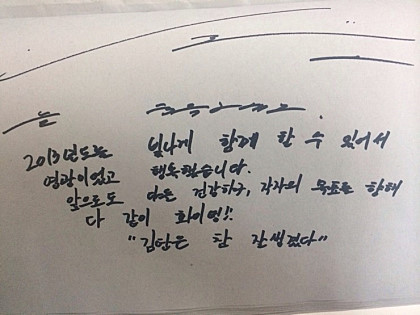 2013년도는 빛나게 함께 할 수 있어서
영광이었고 행복했습니다.
앞으로도 다들 건강하구, 각자의 목표를 향해
다 같이 화이팅!!
"김탄은 참 잘생겼다"